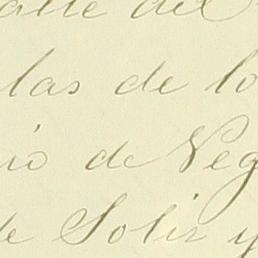 alle del
las de lo
io de Veg
de Solir y